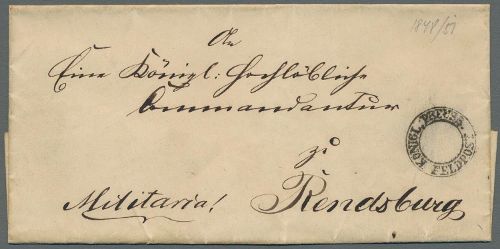 1848/51
An
Eine Königl: Hochlöbliche
Commandantur
zu
Militaria! Rendsburg
KÖNIGL. PREUSS. FELDPOST